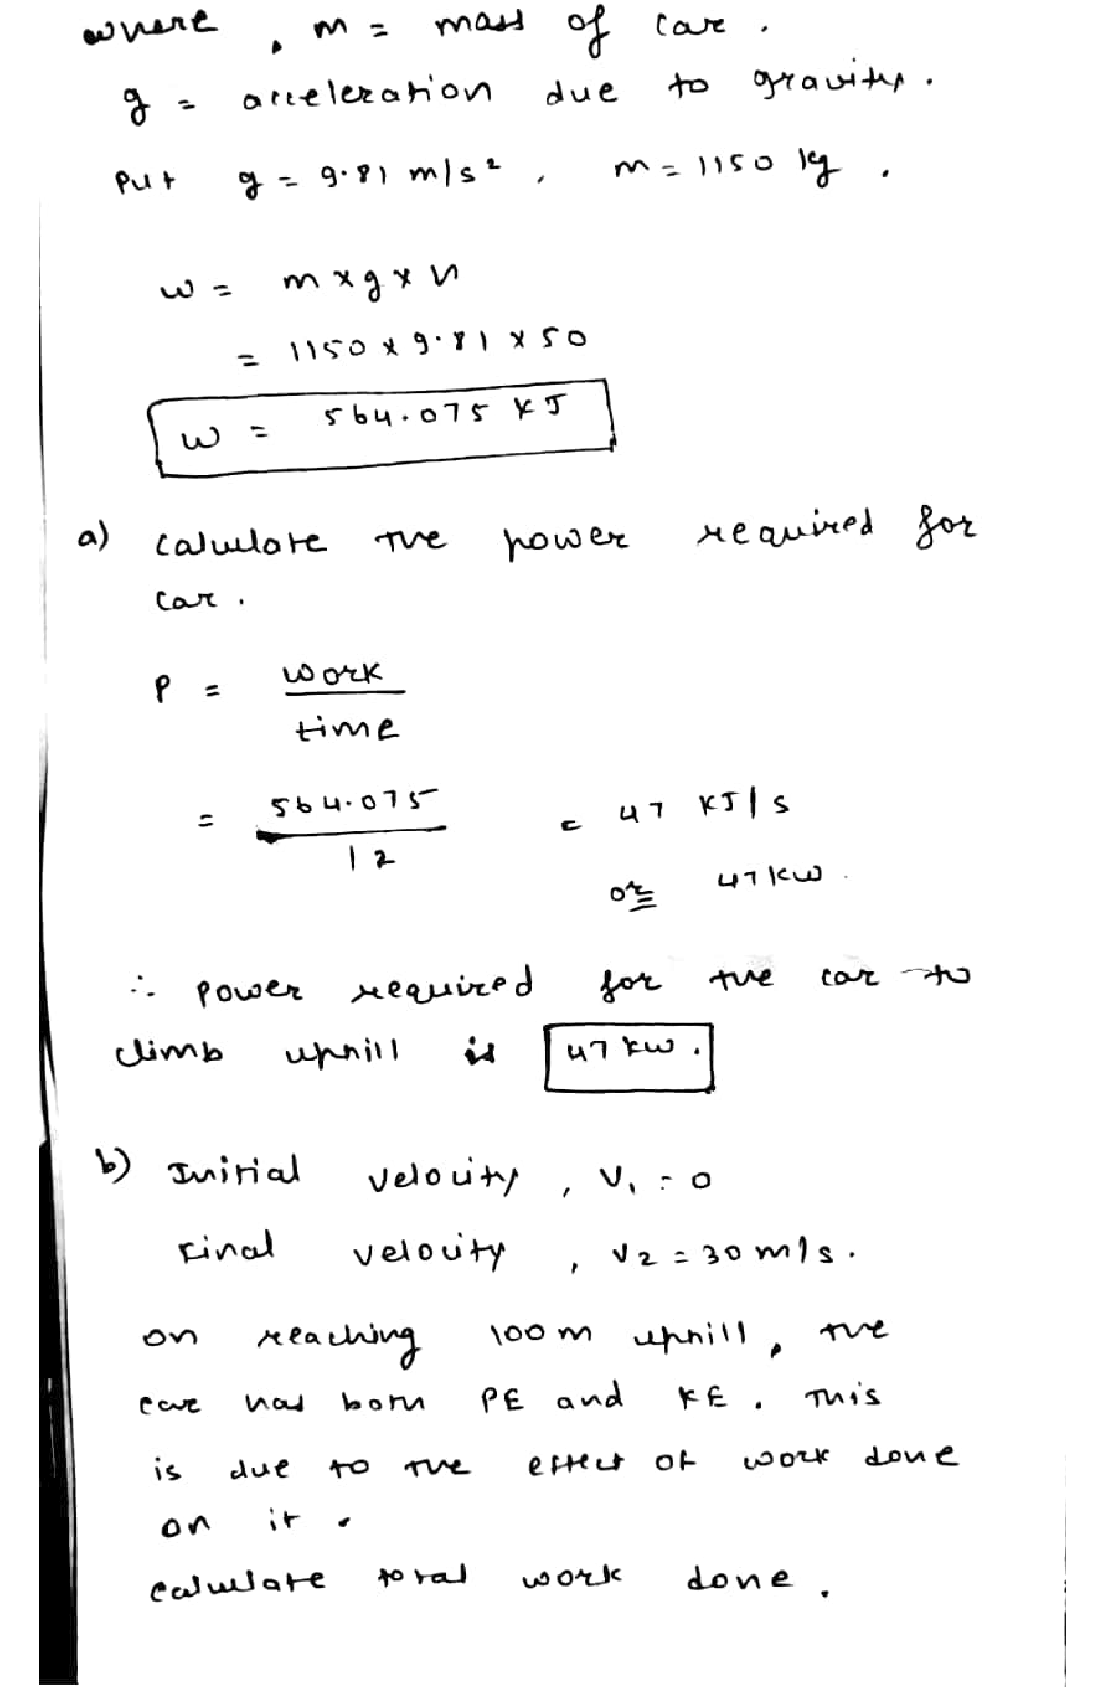 where, m = mass of car.
g = acceleration due to gravity.
Put g = 9.81 m/s², m = 1150 kg.
W = m × g × h
= 1150 × 9.81 × 50
W = 564.075 KJ
a) calculate the power required for
car.
P = work
time
= 564.075
12
= 47 KJ/s
or 47 kW.
∴ Power required for the car to
climb uphill is 47 kW.
b) Initial velocity, V₁ = 0
Final velocity, V₂ = 30 m/s.
on reaching 100 m uphill, the
car has both PE and KE. This
is due to the effect of work done
on it.
calculate total work done.